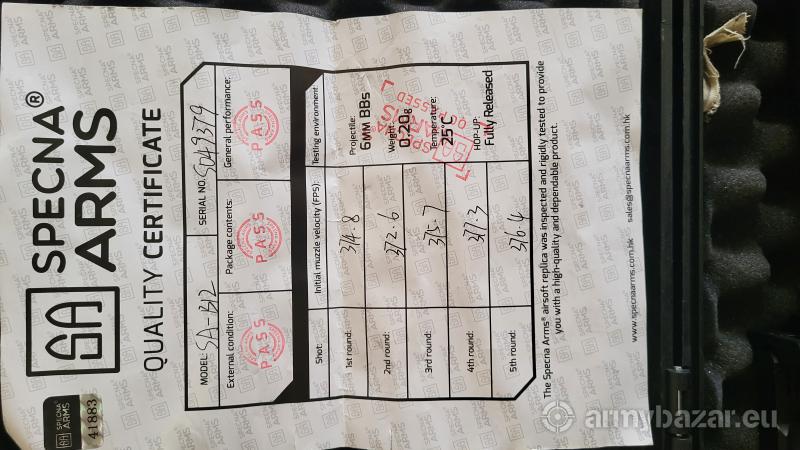 SPECNA
ARMS
41883
SA SPECNA®
ARMS
QUALITY CERTIFICATE
MODEL: SA-B12 SERIAL NO. S049379
External condition: Package contents: General performance:
PASS PASS PASS
Shot: Initial muzzle velocity (FPS): Testing environment:
1st round: 374.8 Projectile:
6MM BBs
2nd round: 372.6 Weight:
0.20g
3rd round: 375.7 Temperature:
25°C
4th round: 377.3 HOP-UP:
Fully Released
5th round: 376.4
The Specna Arms® airsoft replica was inspected and rigidly tested to provide
you with a high-quality and dependable product.
www.specnaarms.com.hk sales@specnaarms.com.hk
armybazar.eu